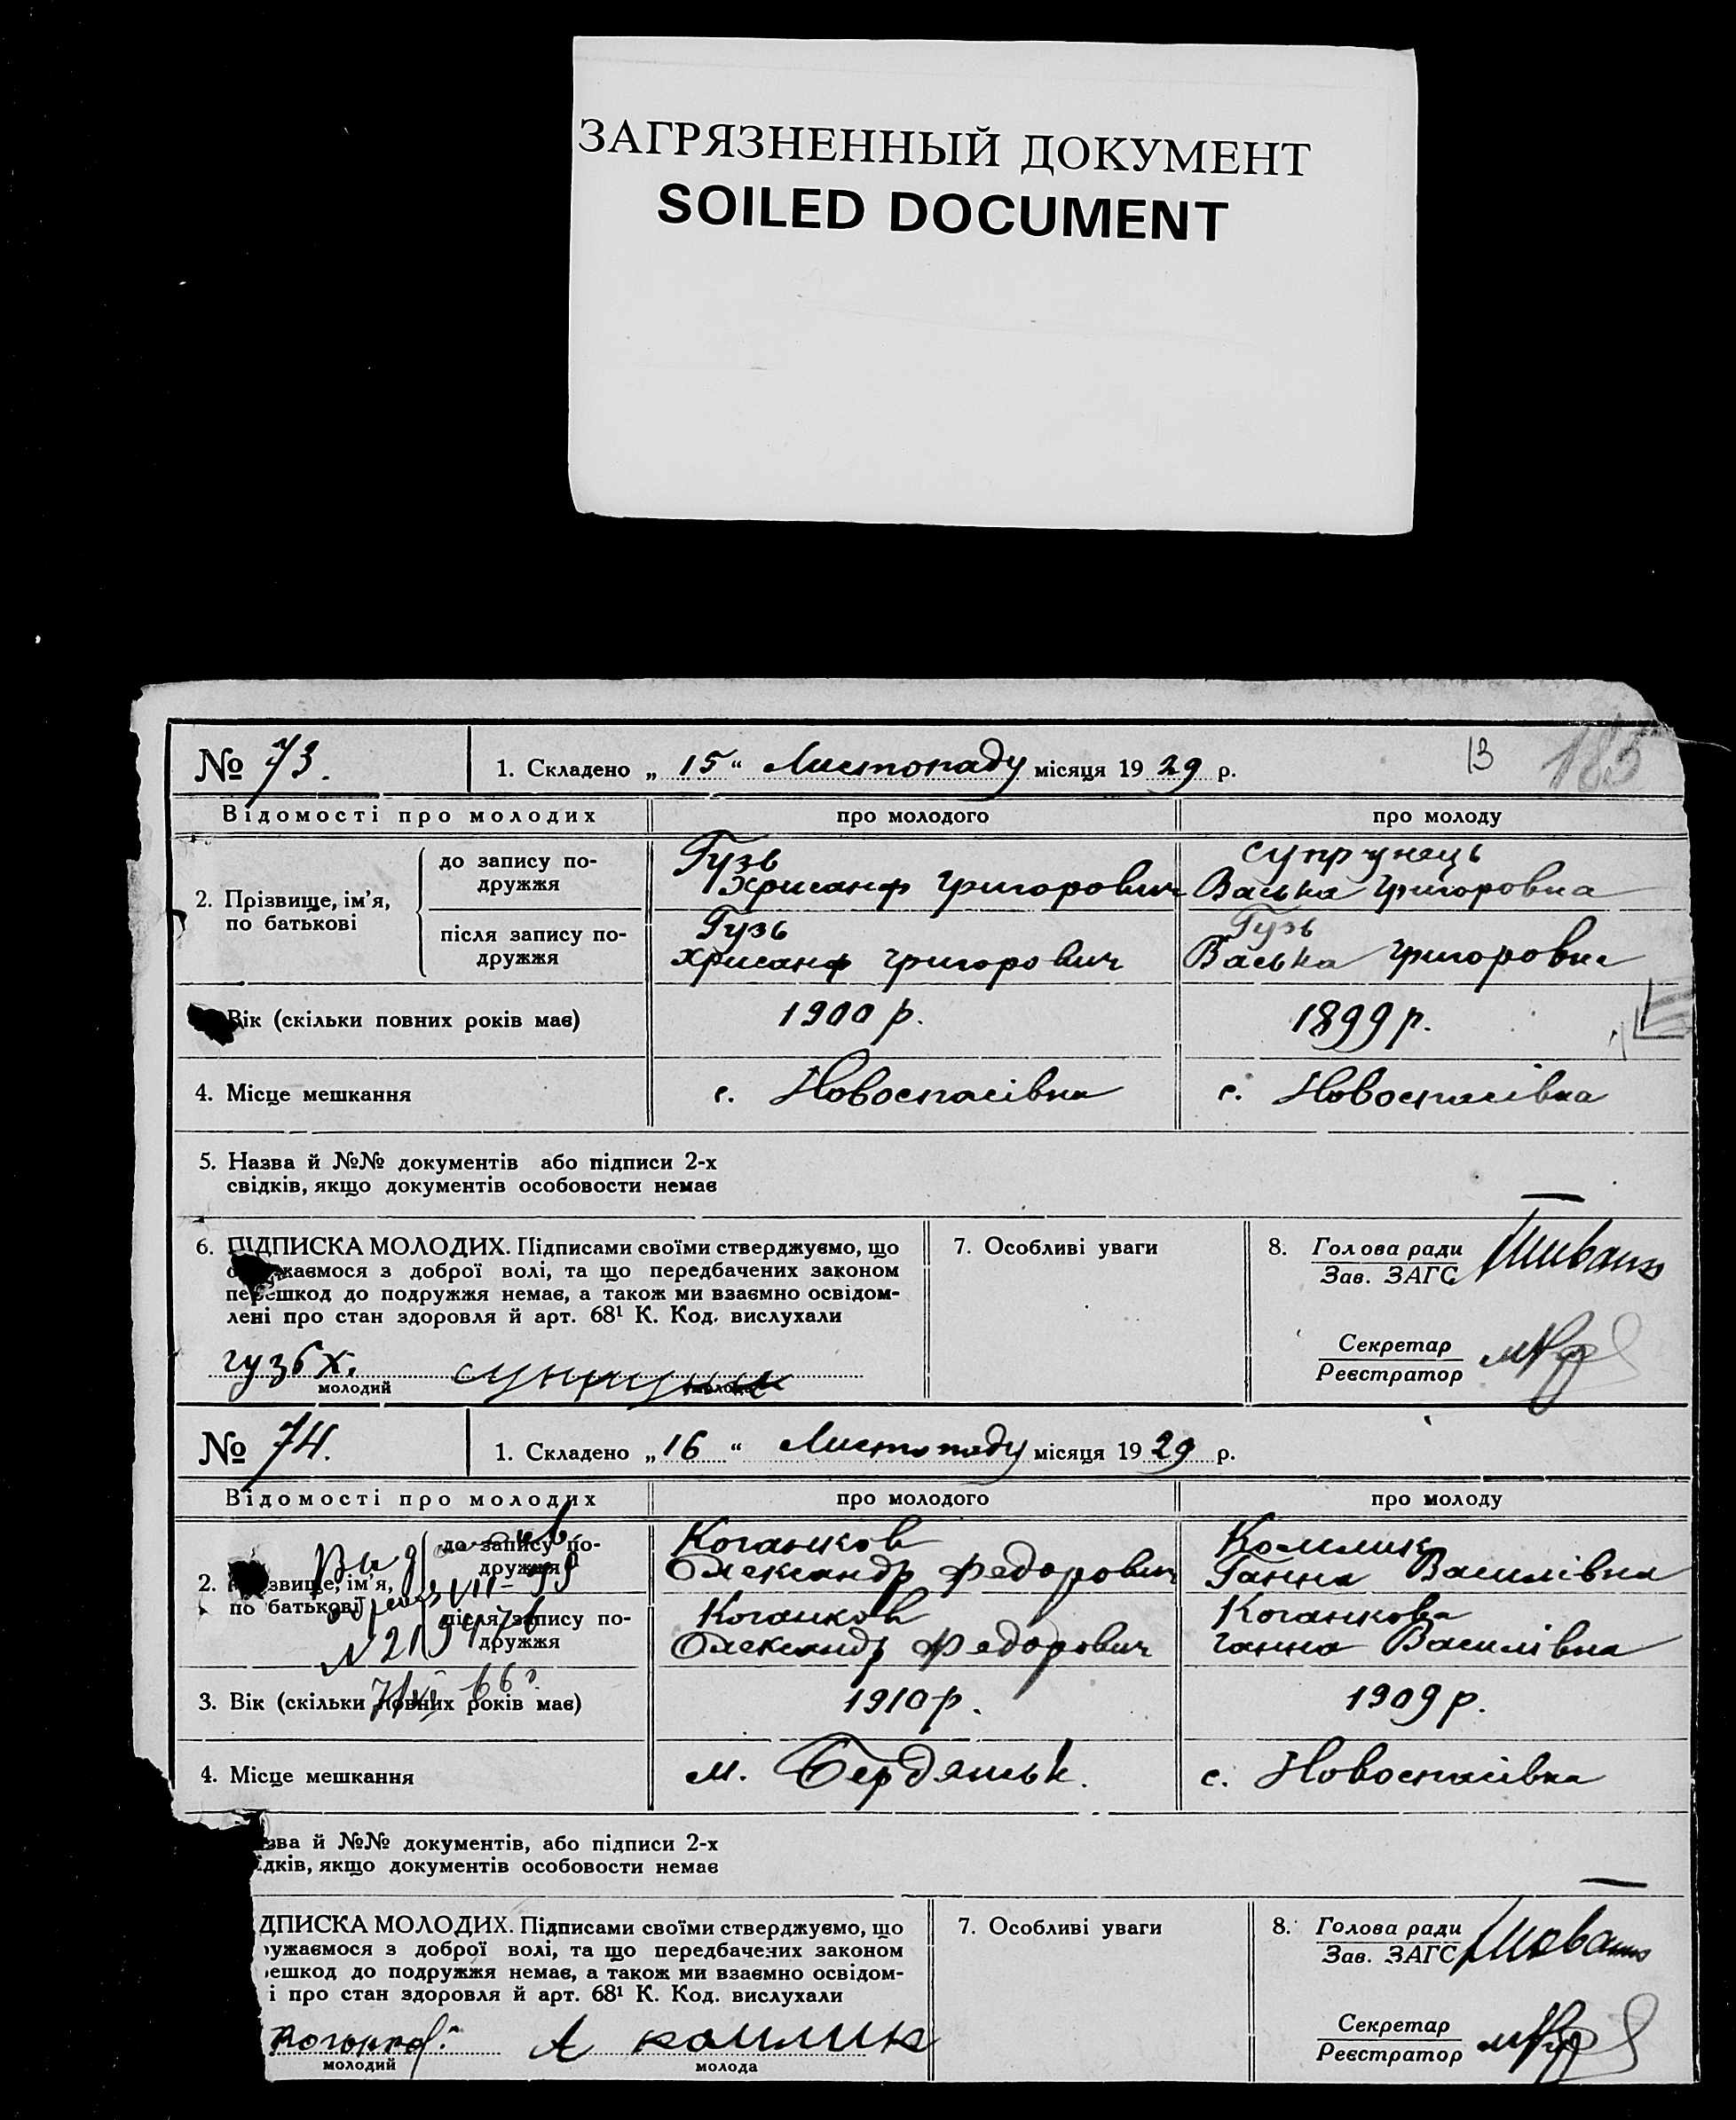 ЗАГРЯЗНЕННЫЙ ДОКУМЕНТ
SOILED DOCUMENT
№ 73. 1. Складено „ 15 “ Листопаду місяця 19 29 р. 13 185
Відомості про молодих про молодого про молоду
2. Прізвище, ім’я, по батькові
до запису подружжя
Гузь Супрунець
Хрисанф Григорович Васька Григоровна
після запису подружжя
Гузь Гузь
Хрисанф Григорович Васька Григоровна
Вік (скільки повних років має) 1900 р. 1899 р.
4. Місце мешкання с. Новоспасівка с. Новоспасівка
5. Назва й №№ документів або підписи 2-х
свідків, якщо документів особовости немає
6. ПІДПИСКА МОЛОДИХ. Підписами своїми стверджуємо, що
жаємося з доброї волі, та що передбачених законом
перешкод до подружжя немає, а також ми взаємно освідом-
лені про стан здоровля й арт. 68¹ К. Код. вислухали
гузь х.
молодий молода
7. Особливі уваги
8. Голова ради
Зав. ЗАГС
Секретар
Реєстратор
№ 74. 1. Складено „ 16 “ Листопаду місяця 19 29 р.
Відомості про молодих про молодого про молоду
2. звище, ім’я,
по батькові
до запису по-
дружжя
Коганков Колмик
Олександр Федорович Ганна Василівна
після запису по-
дружжя
Коганков Коганкова
Олександр Федорович Ганна Василівна
3. Вік (скільки повних років має) 1910 р. 1909 р.
4. Місце мешкання м. Бердянськ. с. Новоспасівка
зва й №№ документів, або підписи 2-х
ідків, якщо документів особовости немає
ДПИСКА МОЛОДИХ. Підписами своїми стверджуємо, що
ружаємося з доброї волі, та що передбачених законом
ешкод до подружжя немає, а також ми взаємно освідом-
і про стан здоровля й арт. 68¹ К. Код. вислухали
молодий молода
7. Особливі уваги
8. Голова ради
Зав. ЗАГС
Секретар
Реєстратор